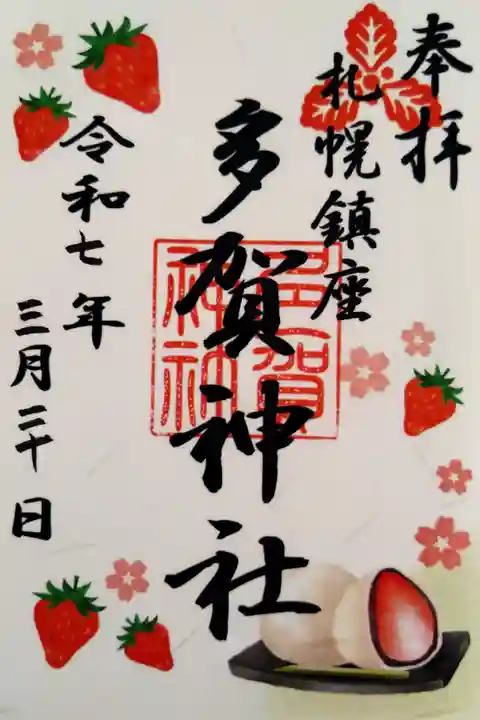 奉拝
札幌鎮座
多賀神社
多賀
神社
令和七年
三月二十日